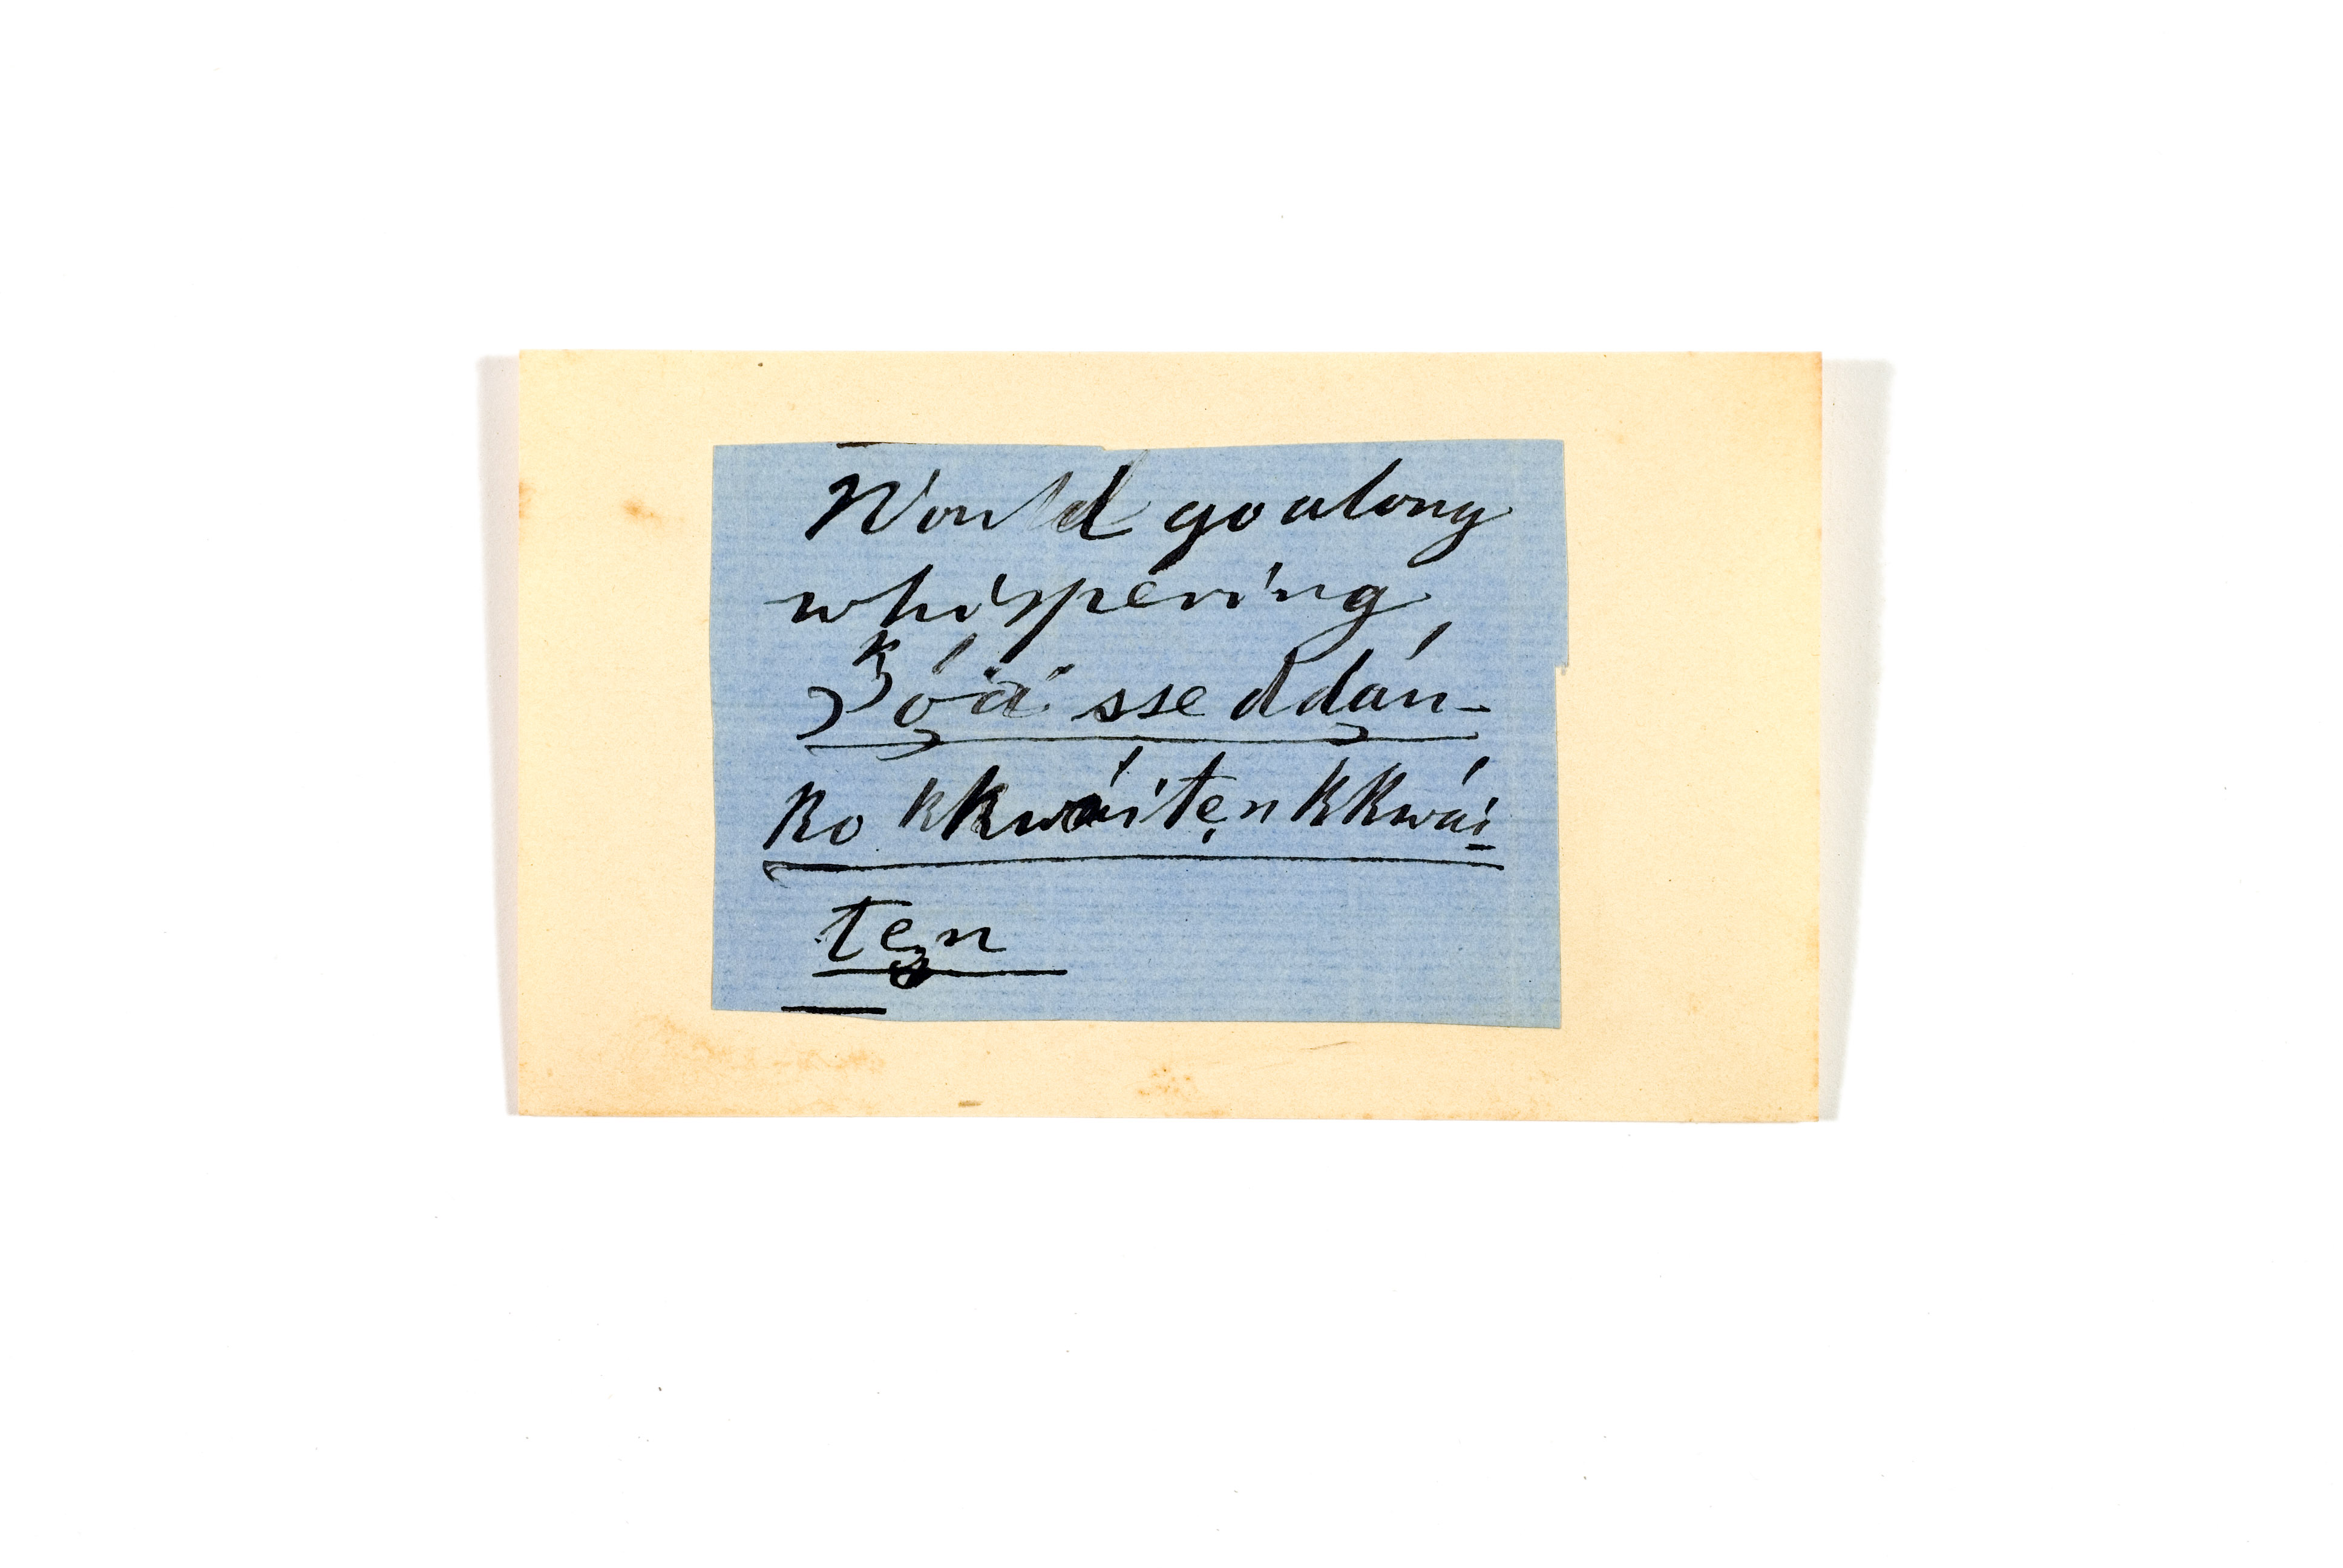 Would go along
whispering
ʒkóä sse ddán-
ko kkwáitẹn kkwái
tẹn